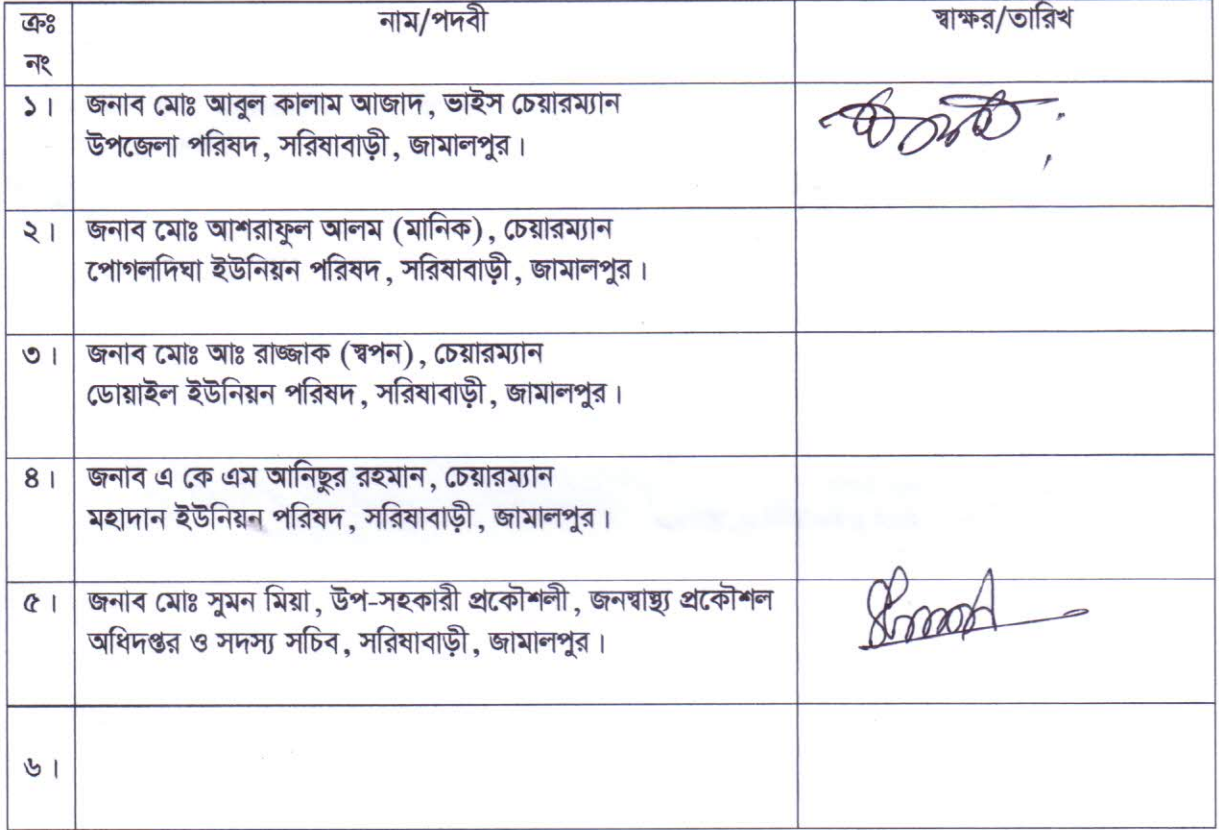 ক্রঃ নাম/পদবী স্বাক্ষর/তারিখ
নং
১। জনাব মোঃ আবুল কালাম আজাদ, ভাইস চেয়ারম্যান
উপজেলা পরিষদ, সরিষাবাড়ী, জামালপুর।
২। জনাব মোঃ আশরাফুল আলম (মানিক), চেয়ারম্যান
পোগলদিঘা ইউনিয়ন পরিষদ, সরিষাবাড়ী, জামালপুর।
৩। জনাব মোঃ আঃ রাজ্জাক (স্বপন), চেয়ারম্যান
ডোয়াইল ইউনিয়ন পরিষদ, সরিষাবাড়ী, জামালপুর।
৪। জনাব এ কে এম আনিছুর রহমান, চেয়ারম্যান
মহাদান ইউনিয়ন পরিষদ, সরিষাবাড়ী, জামালপুর।
৫। জনাব মোঃ সুমন মিয়া, উপ-সহকারী প্রকৌশলী, জনস্বাস্থ্য প্রকৌশল
অধিদপ্তর ও সদস্য সচিব, সরিষাবাড়ী, জামালপুর।
৬।